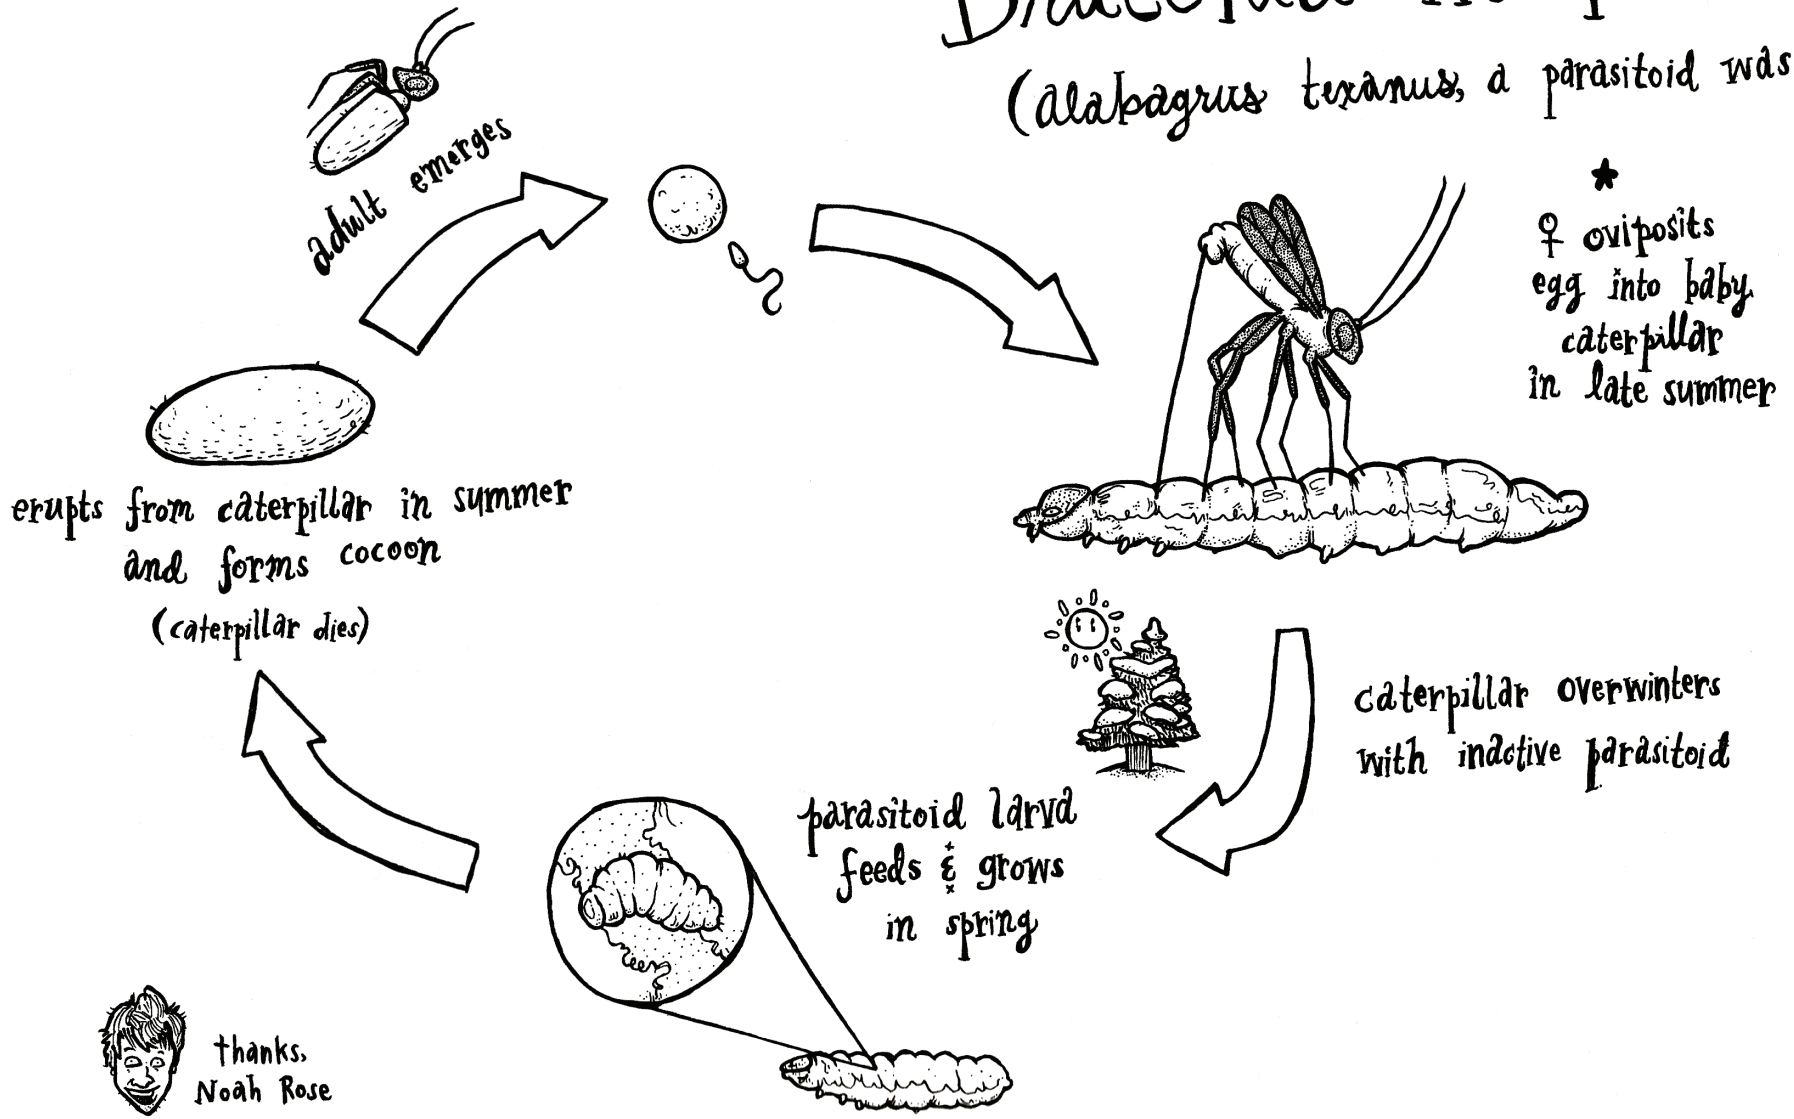 (alabagrus texanus, a parasitoid was
adult emerges
★
♀ oviposits
egg into baby
caterpillar
in late summer
erupts from caterpillar in summer
and forms cocoon
(caterpillar dies)
caterpillar overwinters
with inactive parasitoid
parasitoid larva
feeds & grows
in spring
thanks,
Noah Rose